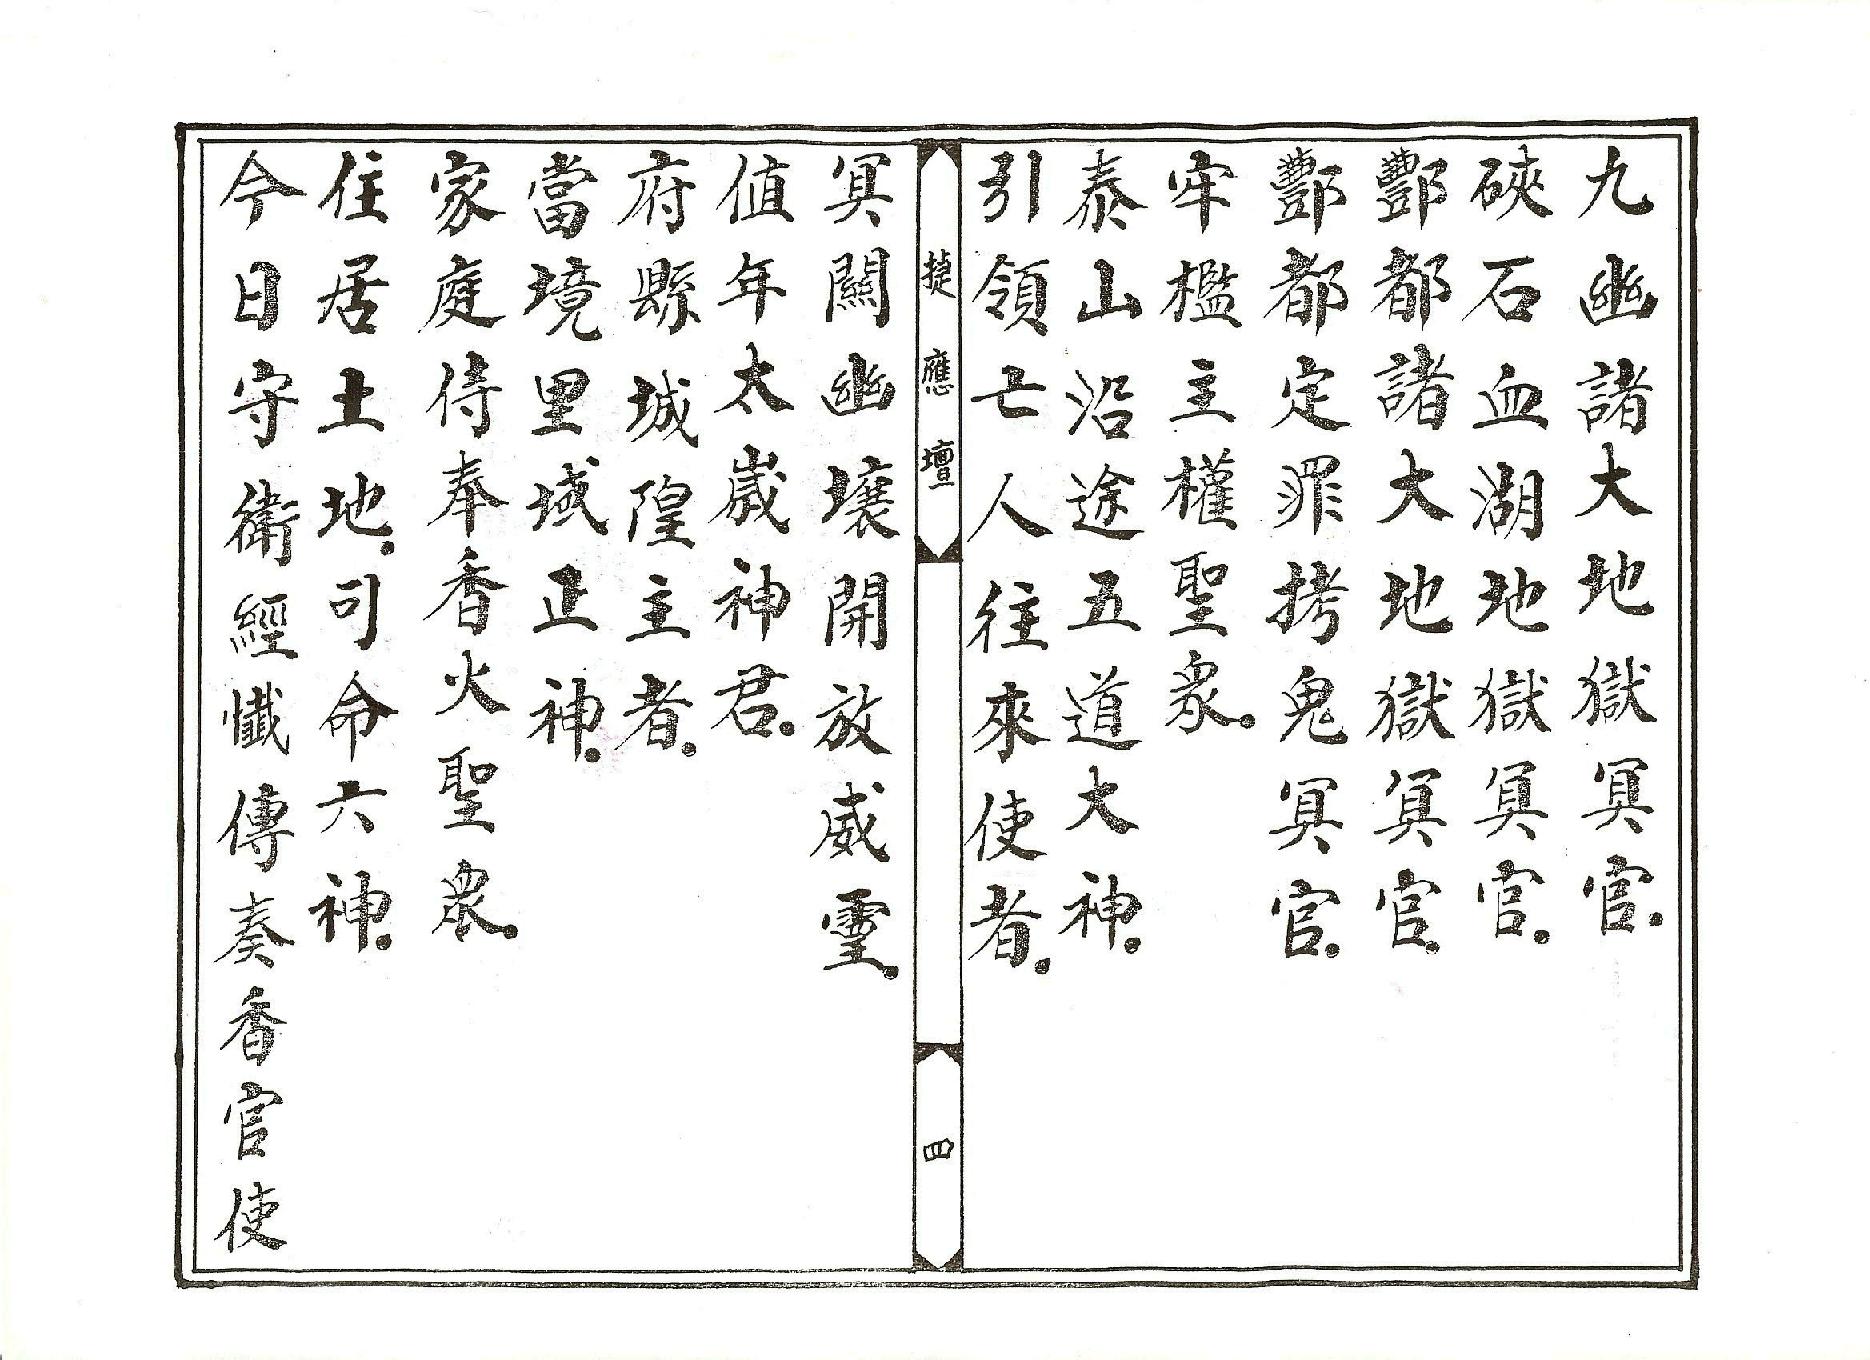 九幽諸大地獄冥官.
硤石血湖地獄冥官.
酆都諸大地獄冥官.
酆都定罪拷鬼冥官.
牢檻主權聖衆.
泰山沿途五道大神.
引領亡人往來使者.
捷應壇
四
冥關幽壤開放威靈.
值年太歲神君.
府縣城隍主者.
當境里域正神.
家庭侍奉香火聖衆.
住居土地.司命六神.
今日守衛經懺傳奏香官使